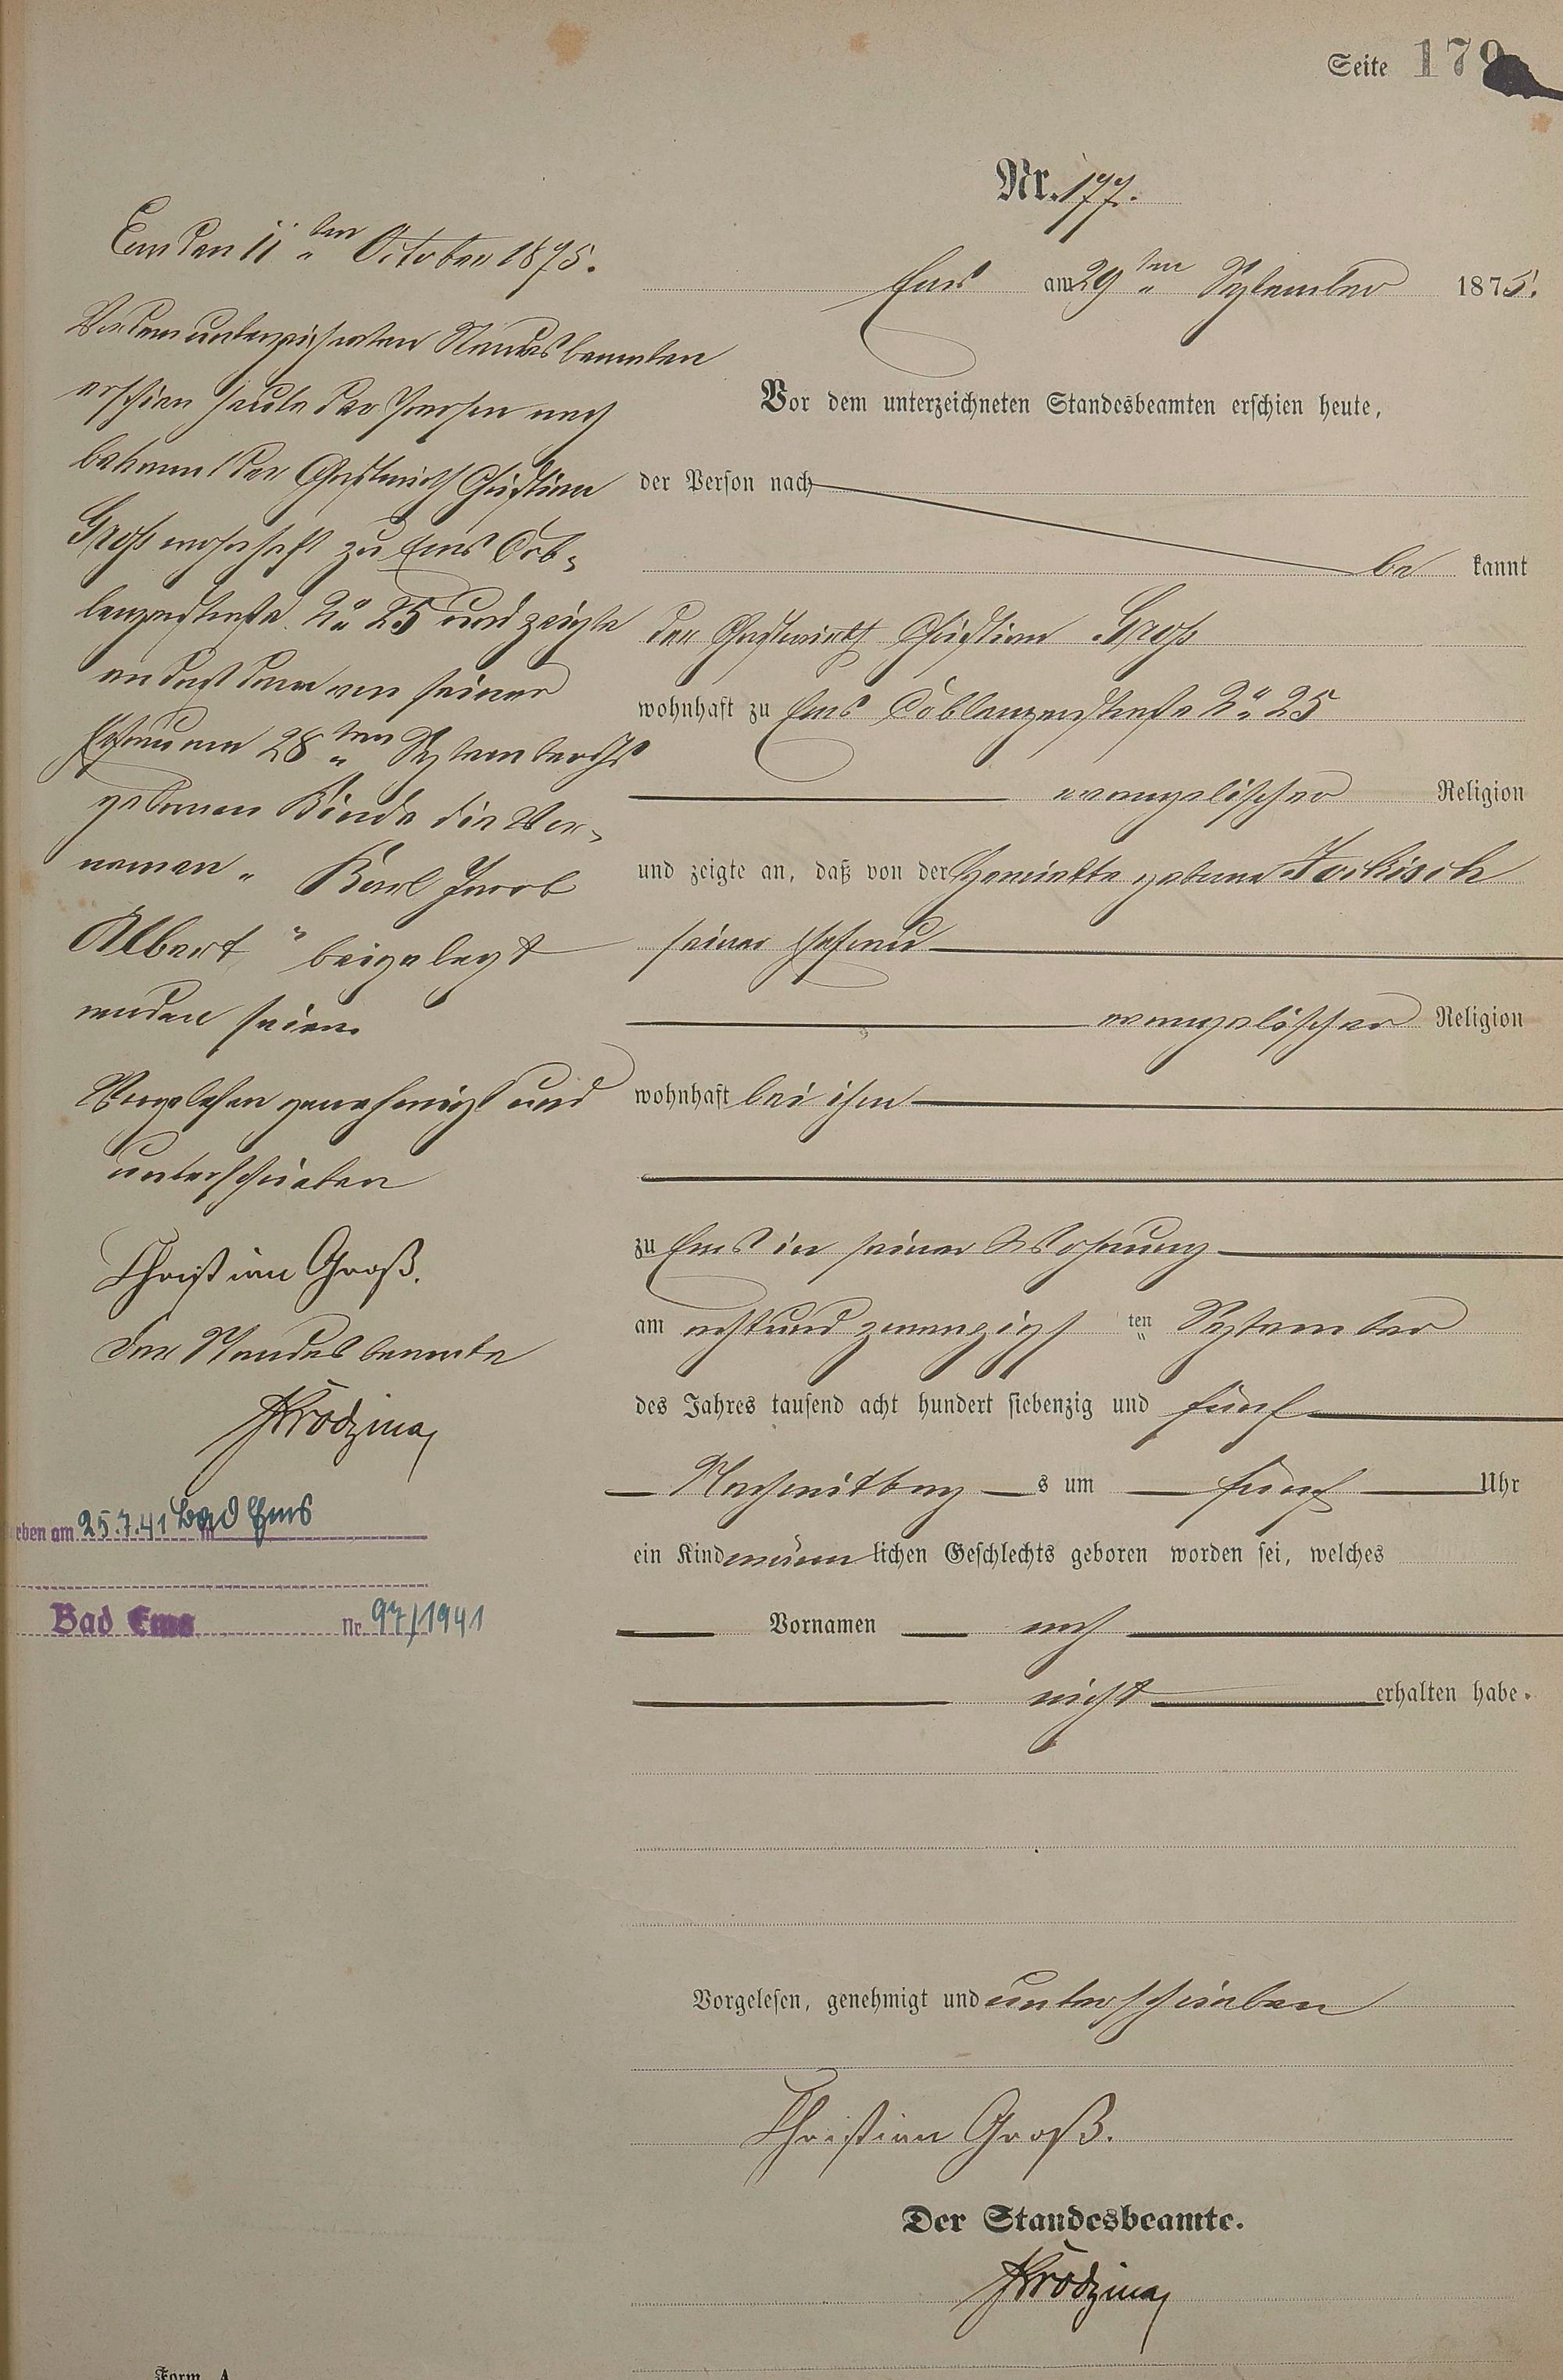 Seite 179
Nr. 177.
Ems am 29 ten September 1875.
Vor dem unterzeichneten Standesbeamten erschien heute,
der Person nach
be kannt
der Gastwirth Christian Groß
wohnhaft zu Ems Coblenzerstraße No 25
evangelischer Religion
und zeigte an, daß von der geborne Jockisch
seiner Ehefrau
evangelischer Religion
wohnhaft bei ihm
zu Ems in seiner Wohnung
am achtundzwanzigs ten September
des Jahres tausend acht hundert siebenzig und fünf
Nachmittag s um fünf Uhr
ein Kind männ lichen Geschlechts geboren worden sei, welches
Vornamen noch
nicht erhalten habe.
Vorgelesen, genehmigt und unterschrieben
Christian Groß.
Der Standesbeamte.
Ems den 11 ten October 1875.
Vor dem unterzeichneten Standesbeamten
erschien heute der Person nach
bekannt der Gastwirth Christian
Groß wohnhaft zu Ems Cob-
lenzerstraße No 25 und zeigte
an daß dem von seiner
Ehefrau am 28 ten September
gebornen Kinde die Vor-
namen " Karl Jacob
Albert " beigelegt
worden seien.
Vorgelesen genehmigt und
unterschrieben
Christian Groß.
Der Standesbeamte
rben am 25.7.41 in Bad Ems
Bad Ems Nr. 97/1941
Form. A